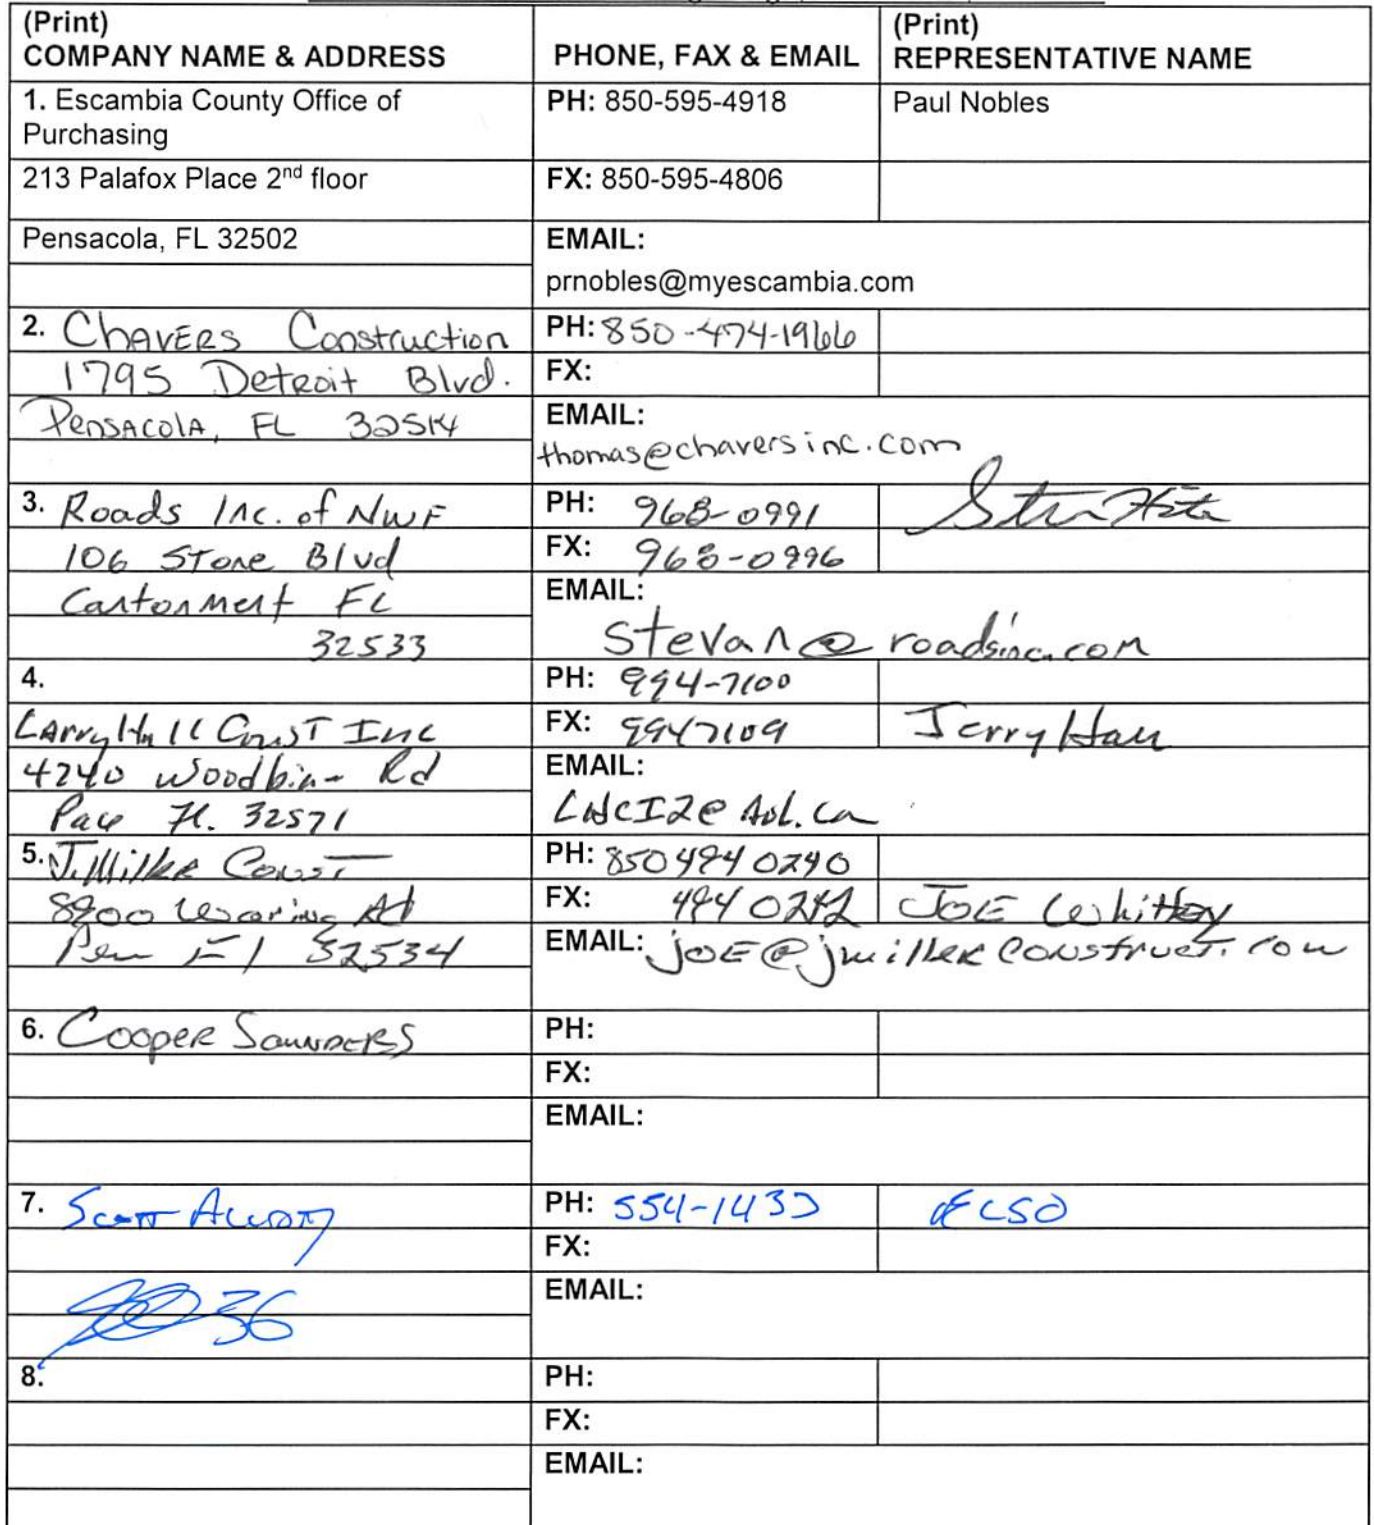 (Print)
COMPANY NAME & ADDRESS
PHONE, FAX & EMAIL
(Print)
REPRESENTATIVE NAME
1. Escambia County Office of
Purchasing
PH: 850-595-4918
Paul Nobles
213 Palafox Place 2nd floor
FX: 850-595-4806
Pensacola, FL 32502
EMAIL:
prnobles@myescambia.com
2. Chavers Construction
PH: 850-474-1966
1795 Detroit Blvd.
FX:
Pensacola, FL 32514
EMAIL:
thomas@chaversinc.com
3. Roads Inc. of NWF
PH: 968-0991
106 Stone Blvd
FX: 968-0996
Cantonment FL
EMAIL:
32533
stevan@roadsinc.com
4.
PH: 994-7100
Larry Hall Const Inc
FX: 9947109
Jerry Hall
4240 Woodbine Rd
EMAIL:
Pace Fl. 32571
5. J. Miller Const
PH: 850 494 0240
8900 Waring Rd
FX: 494 0242
Joe Whitley
Pen Fl 32534
EMAIL: joe@jmillerconstruct.com
6. Cooper Saunders
PH:
FX:
EMAIL:
7. Scott
PH: 554-1433
ECSO
FX:
36
EMAIL:
8.
PH:
FX:
EMAIL: